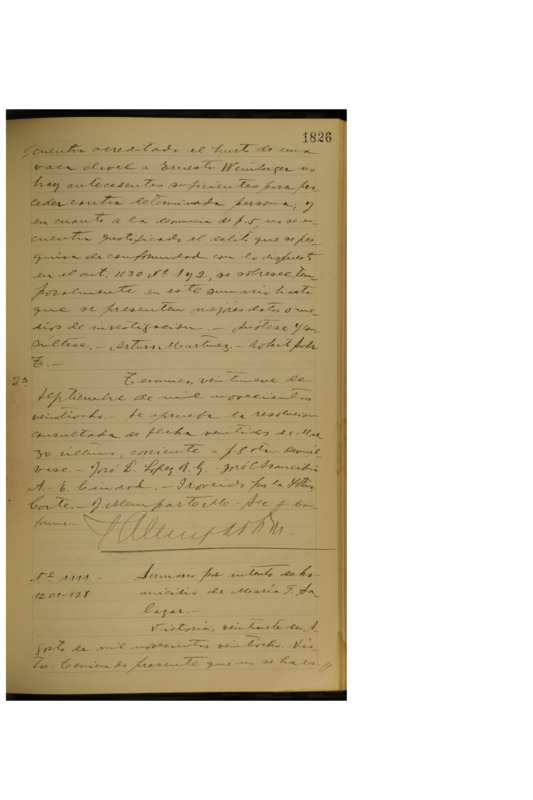 1826
cuentra acreditado el hurto de una
vaca clavel a Ernesto Weinberger no
hay antecedentes suficientes para pro
ceder contra determinada persona, y
en cuanto a la denuncia de f. 5, no se en
cuentra justificado el delito que se pes
quisa de conformidad con lo dispuesto
en el art. 430 Nº 1 y 2, se sobresee tem
poralmente en este sumario hasta
que se presenten mejores datos o me
dios de investigacion. — Anótese y con
súltese. — Arturo Martínez. —
2ª Temuco, veintinueve de
Septiembre de mil novecientos
veintiocho. — Se aprueba la resolucion
consultada de fecha veintidos de Mar
zo último, corriente a f. 8 vta.
vase. — José D. Lopez
A. — E. — Proveido por la Iltma
Corte. —
forme. —
Nº 1111. Sumario por intento de ho-
1201-928 micidio de María T. Sa
lazar. —
Victoria, veintisiete de A
gosto de mil novecientos veintiocho. Vis
tos: Teniendo presente que no se ha es